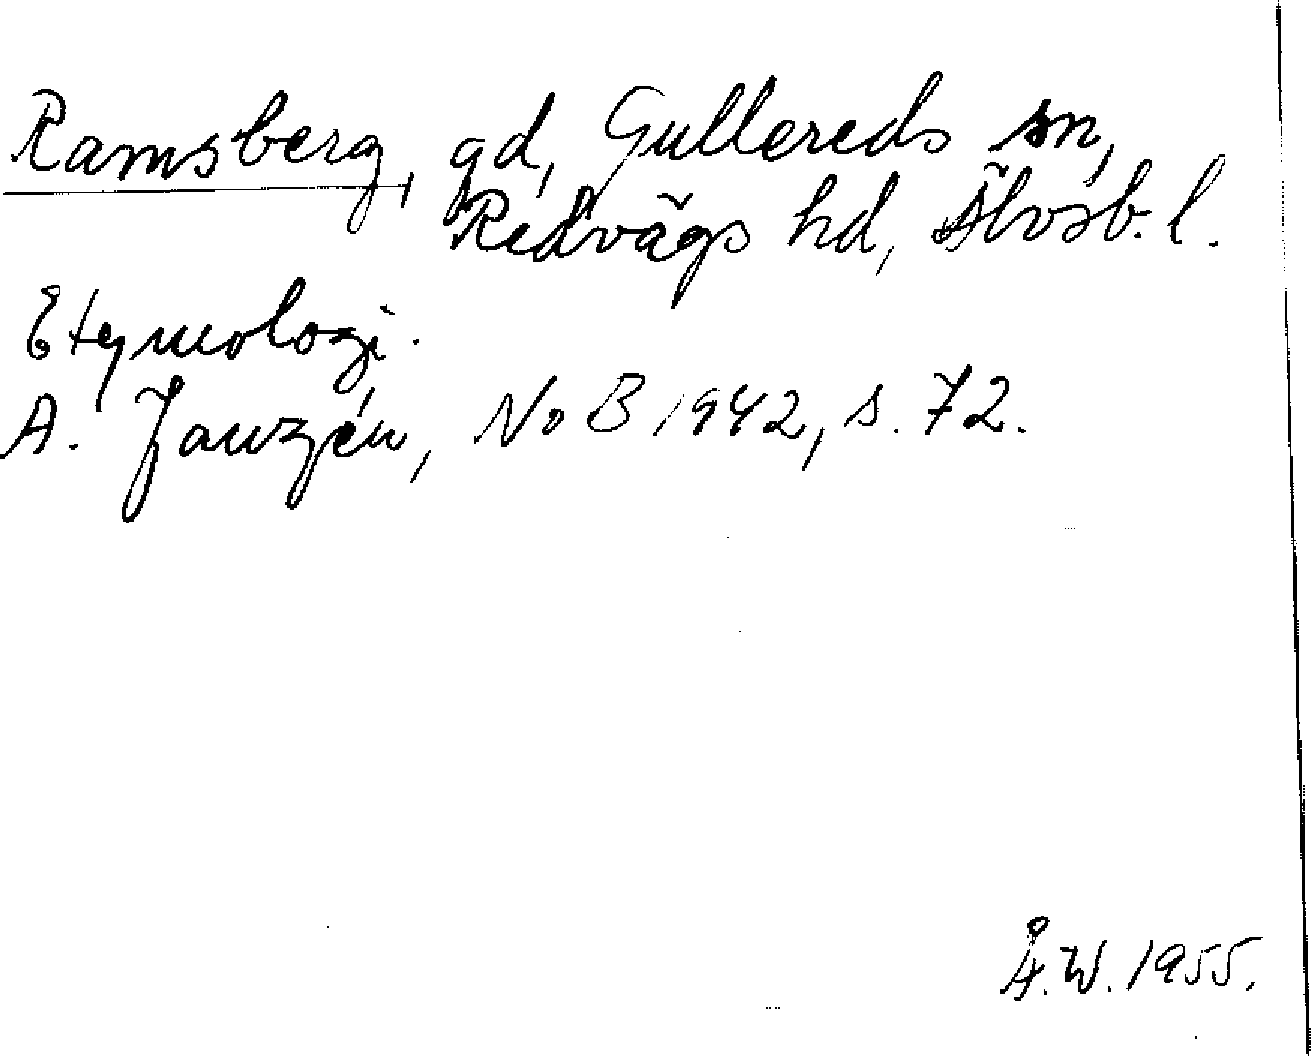 Ramsberg, gd, Gullereds sn,
Redvägs hd, Älvsb. l.
Etymologi.
A. Janzén, NoB 1942, s. 72.
Å.W. 1955.